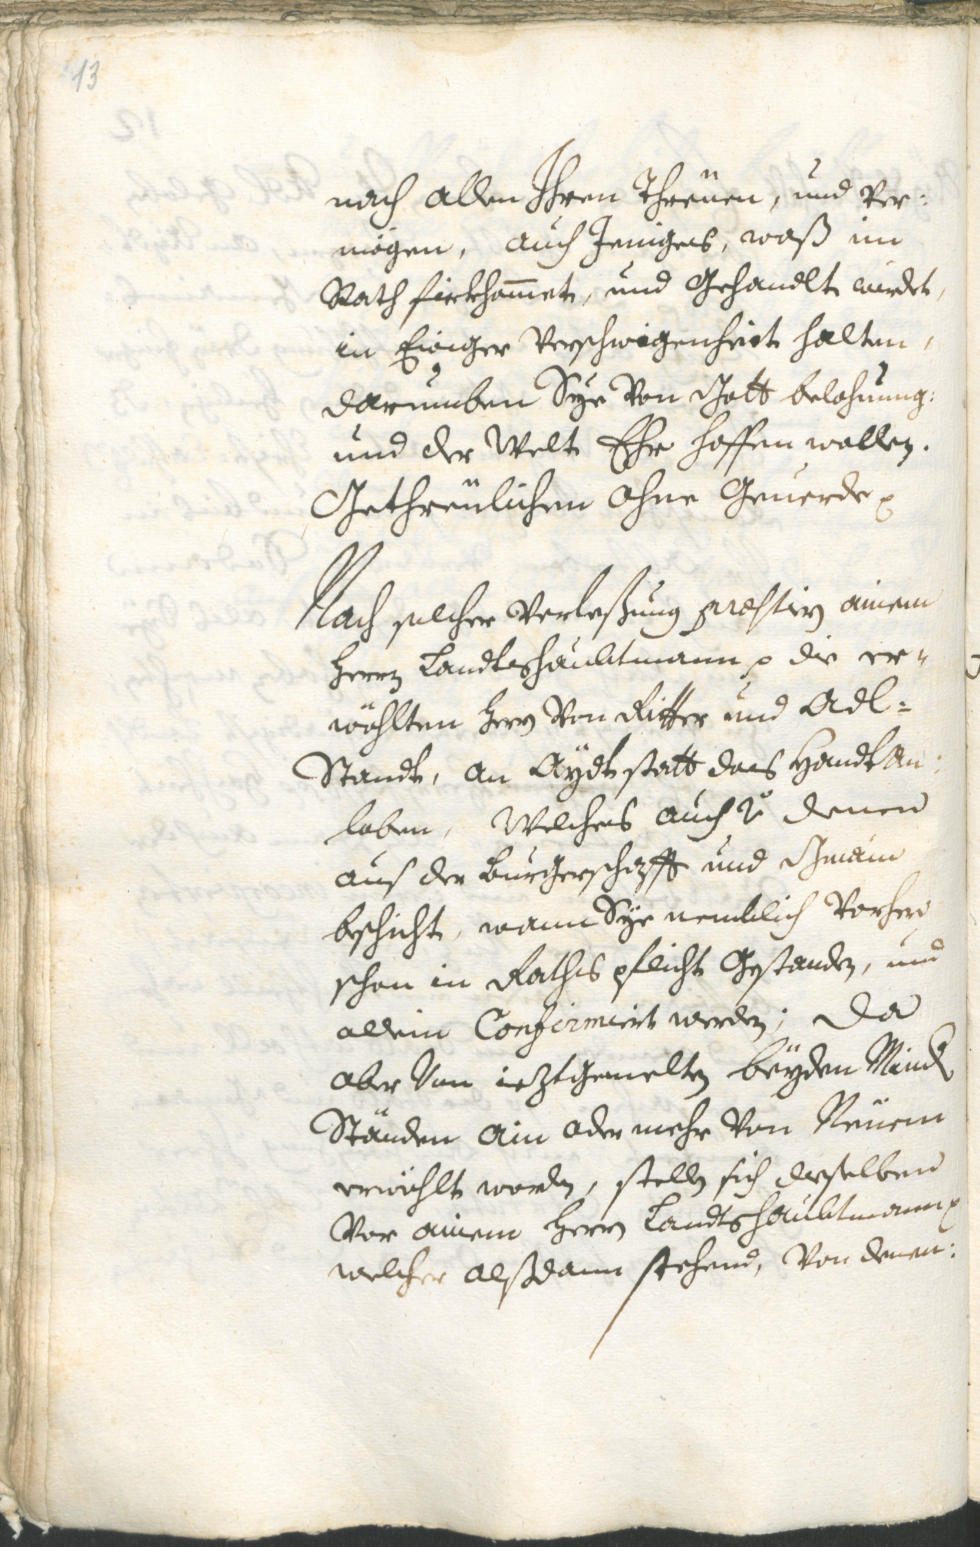 13
nach allen Ihren Threüen, und Ver:
mögen, auch Jeniges, waß im
Rath firkhom̄et, und Gehandlt wirdet,
in Ewiger Verschwigenheit halten,
darumben Sye Von Gott belohnung:
und der Welt Ehr hoffen wollen.
Gethreülichen ohne Geuerde
Nach solcher Verleßung praestirn ainem
Herrn Landtshaubtmann die er"
wöhlten Herrn Von Ritter und Adl=
Standt, an Aydts statt das Handtan:
loben, Welches auch denen
aus der Burgerschafft und Gmain
beschicht, wann Sye nemblich Vorhero
schon in Raths pflicht Gestanden, und
allein Confirmiert werden; Da
aber Von ieztgemelten beyden Mind
Ständen ain oder mehr Von Neüem
erwöhlt worden, stellen sich dieselben
Vor ainem Herrn Landtshaubtmann
welcher alßdann stehend, Von denen: